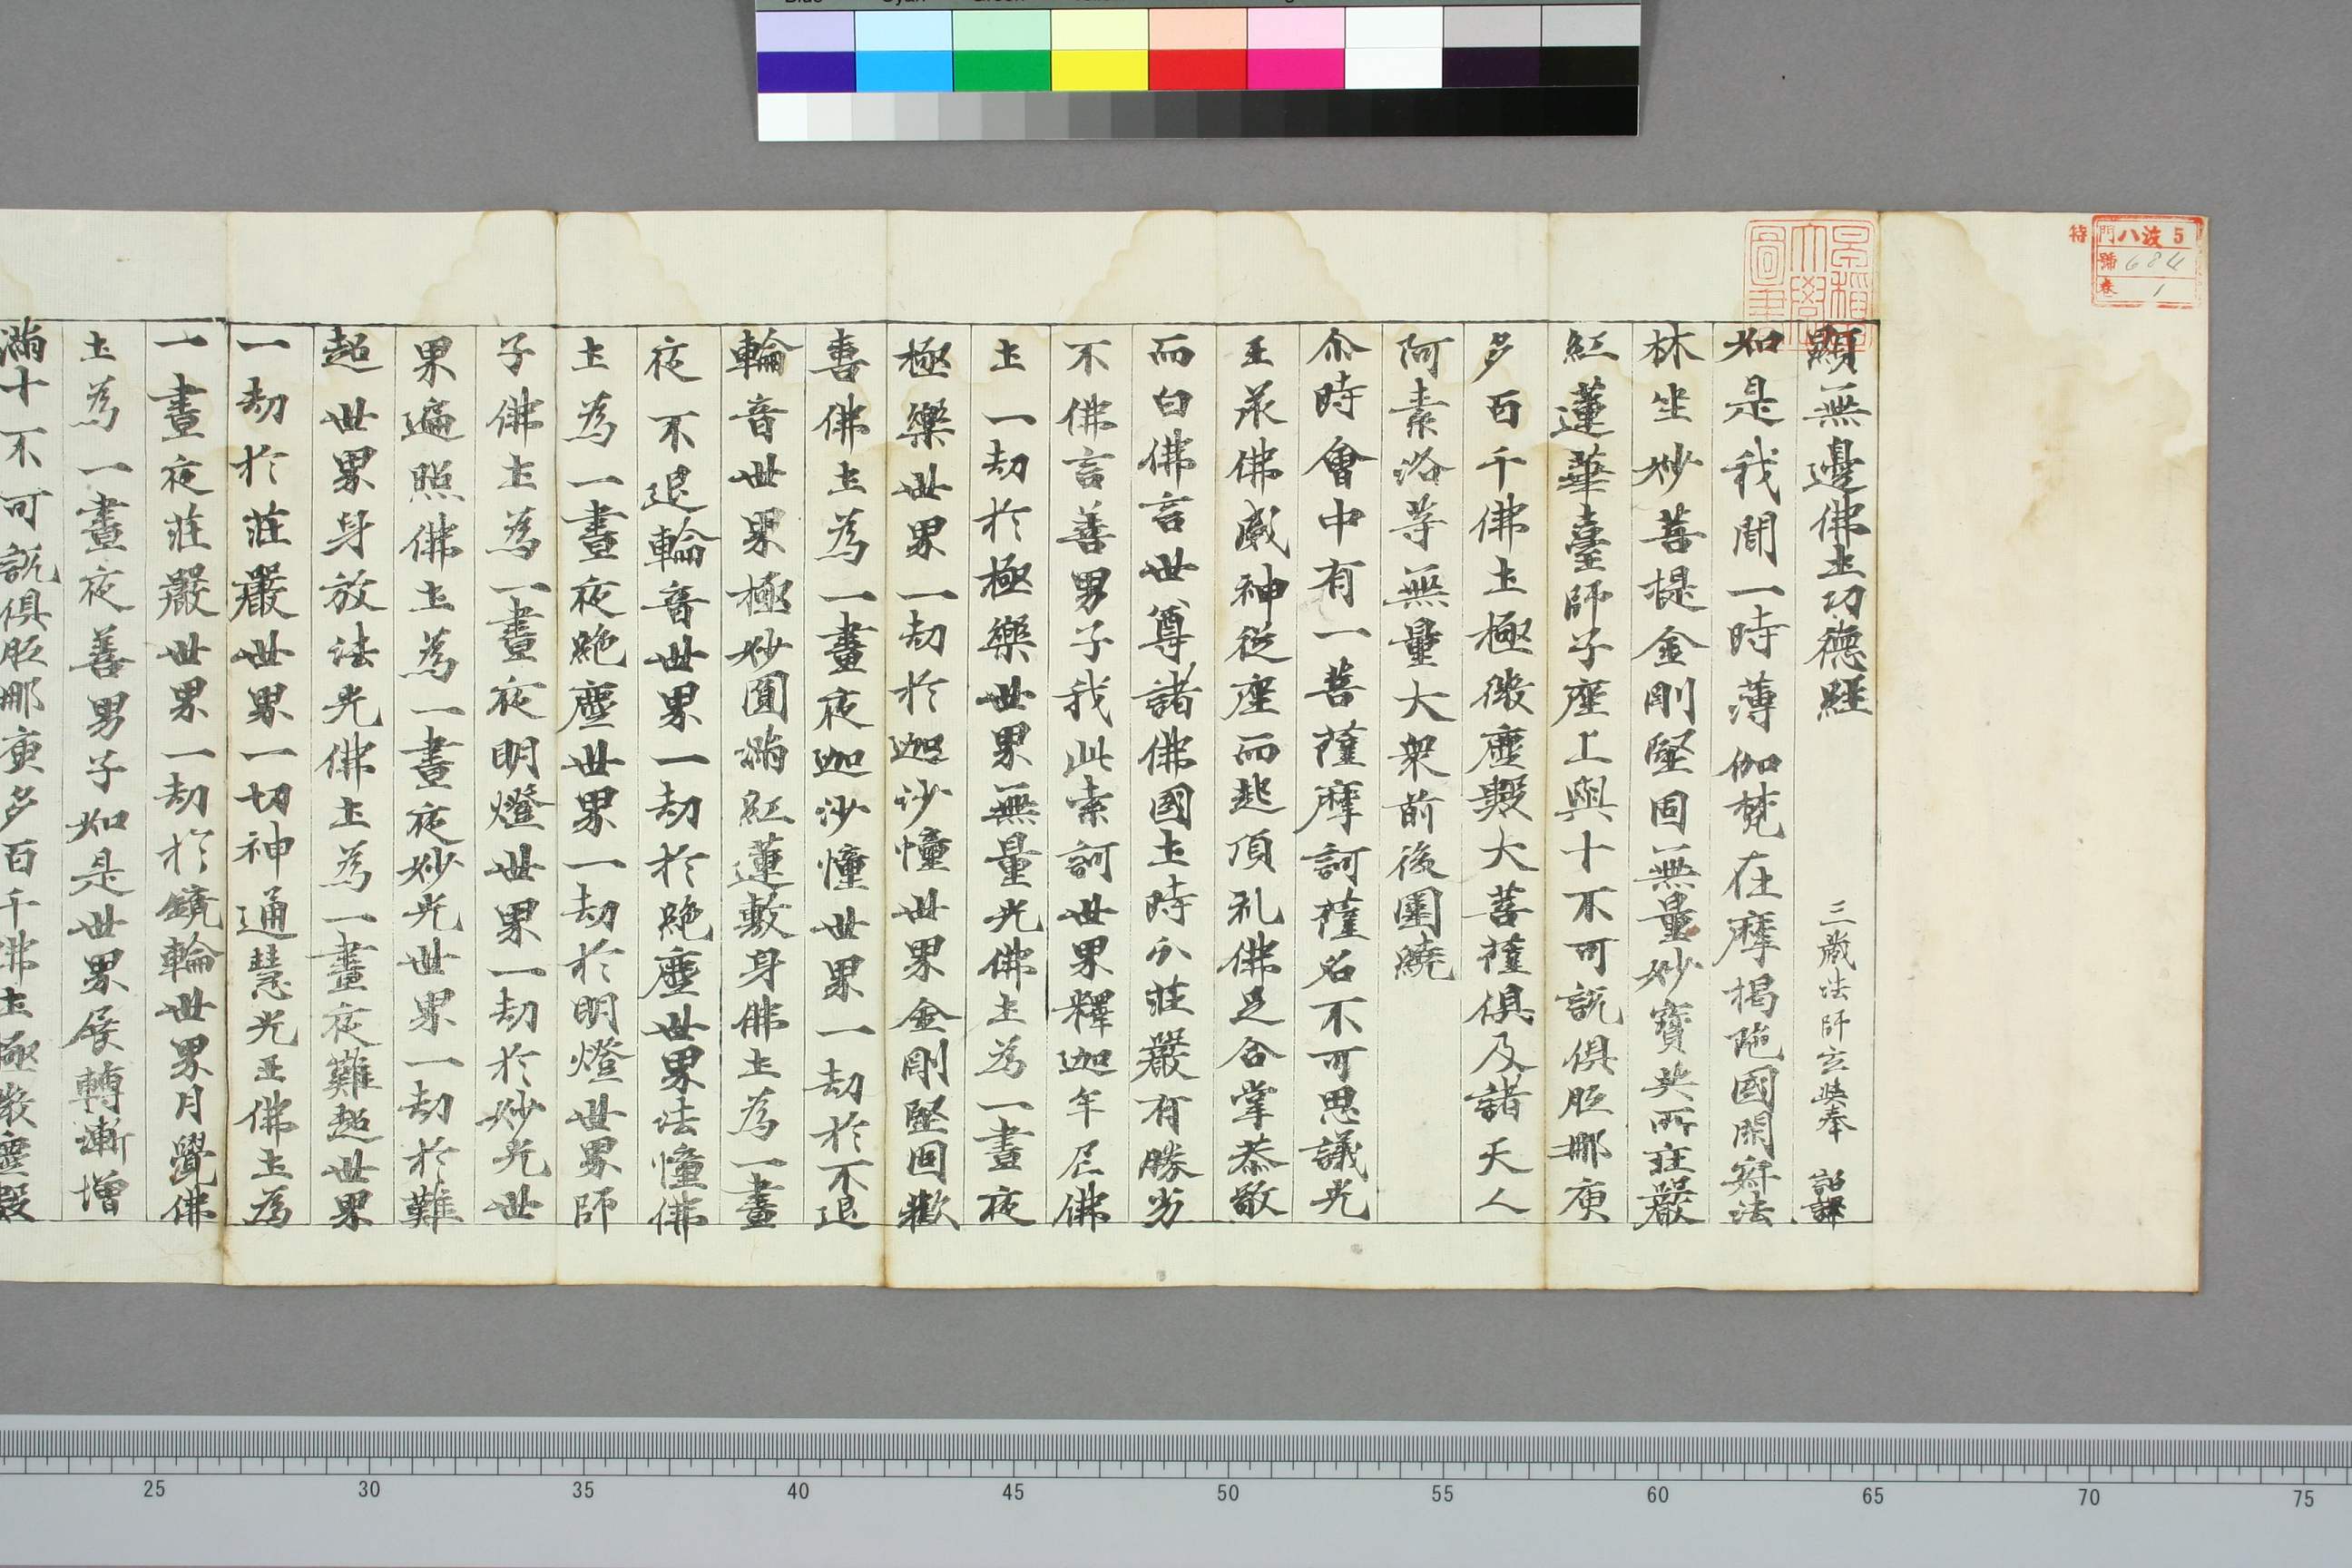 顯無邊佛土功德經　三藏法師玄奘奉　詔譯
如是我聞一時薄伽梵在摩揭陁國閑寂法
林坐妙菩提金剛堅固無量妙寶共所莊嚴
紅蓮華臺師子座上與十不可說俱胝那庾
多百千佛土極微塵數大菩薩俱及諸天人
阿素洛等無量大衆前後圍繞
尒時會中有一菩薩摩訶薩名不可思議光
王承佛威神從座而起頂礼佛足合掌恭敬
而白佛言世尊諸佛國土時分莊嚴有勝劣
不佛言善男子我此索訶世界釋迦牟尼佛
土一劫於極樂世界無量光佛土為一晝夜
極樂世界一劫於迦沙憧世界金剛堅固歡
喜佛土為一晝夜迦沙憧世界一劫於不退
輪音世界極妙圓滿紅蓮敷身佛土為一晝
夜不退輪音世界一劫於絶塵世界法憧佛
土為一晝夜絶塵世界一劫於明燈世界師
子佛土為一晝夜明燈世界一劫於妙光世
界遍照佛土為一晝夜妙光世界一劫於難
超世界身放法光佛土為一晝夜難超世界
一劫於莊嚴世界一切神通慧光王佛土為
一晝夜莊嚴世界一劫於鏡輪世界月覺佛
土為一晝夜善男子如是世界展轉漸增
滿十不可說俱胝那庾多百千佛土極微塵數
特
門 八波 5
號 684
卷 1